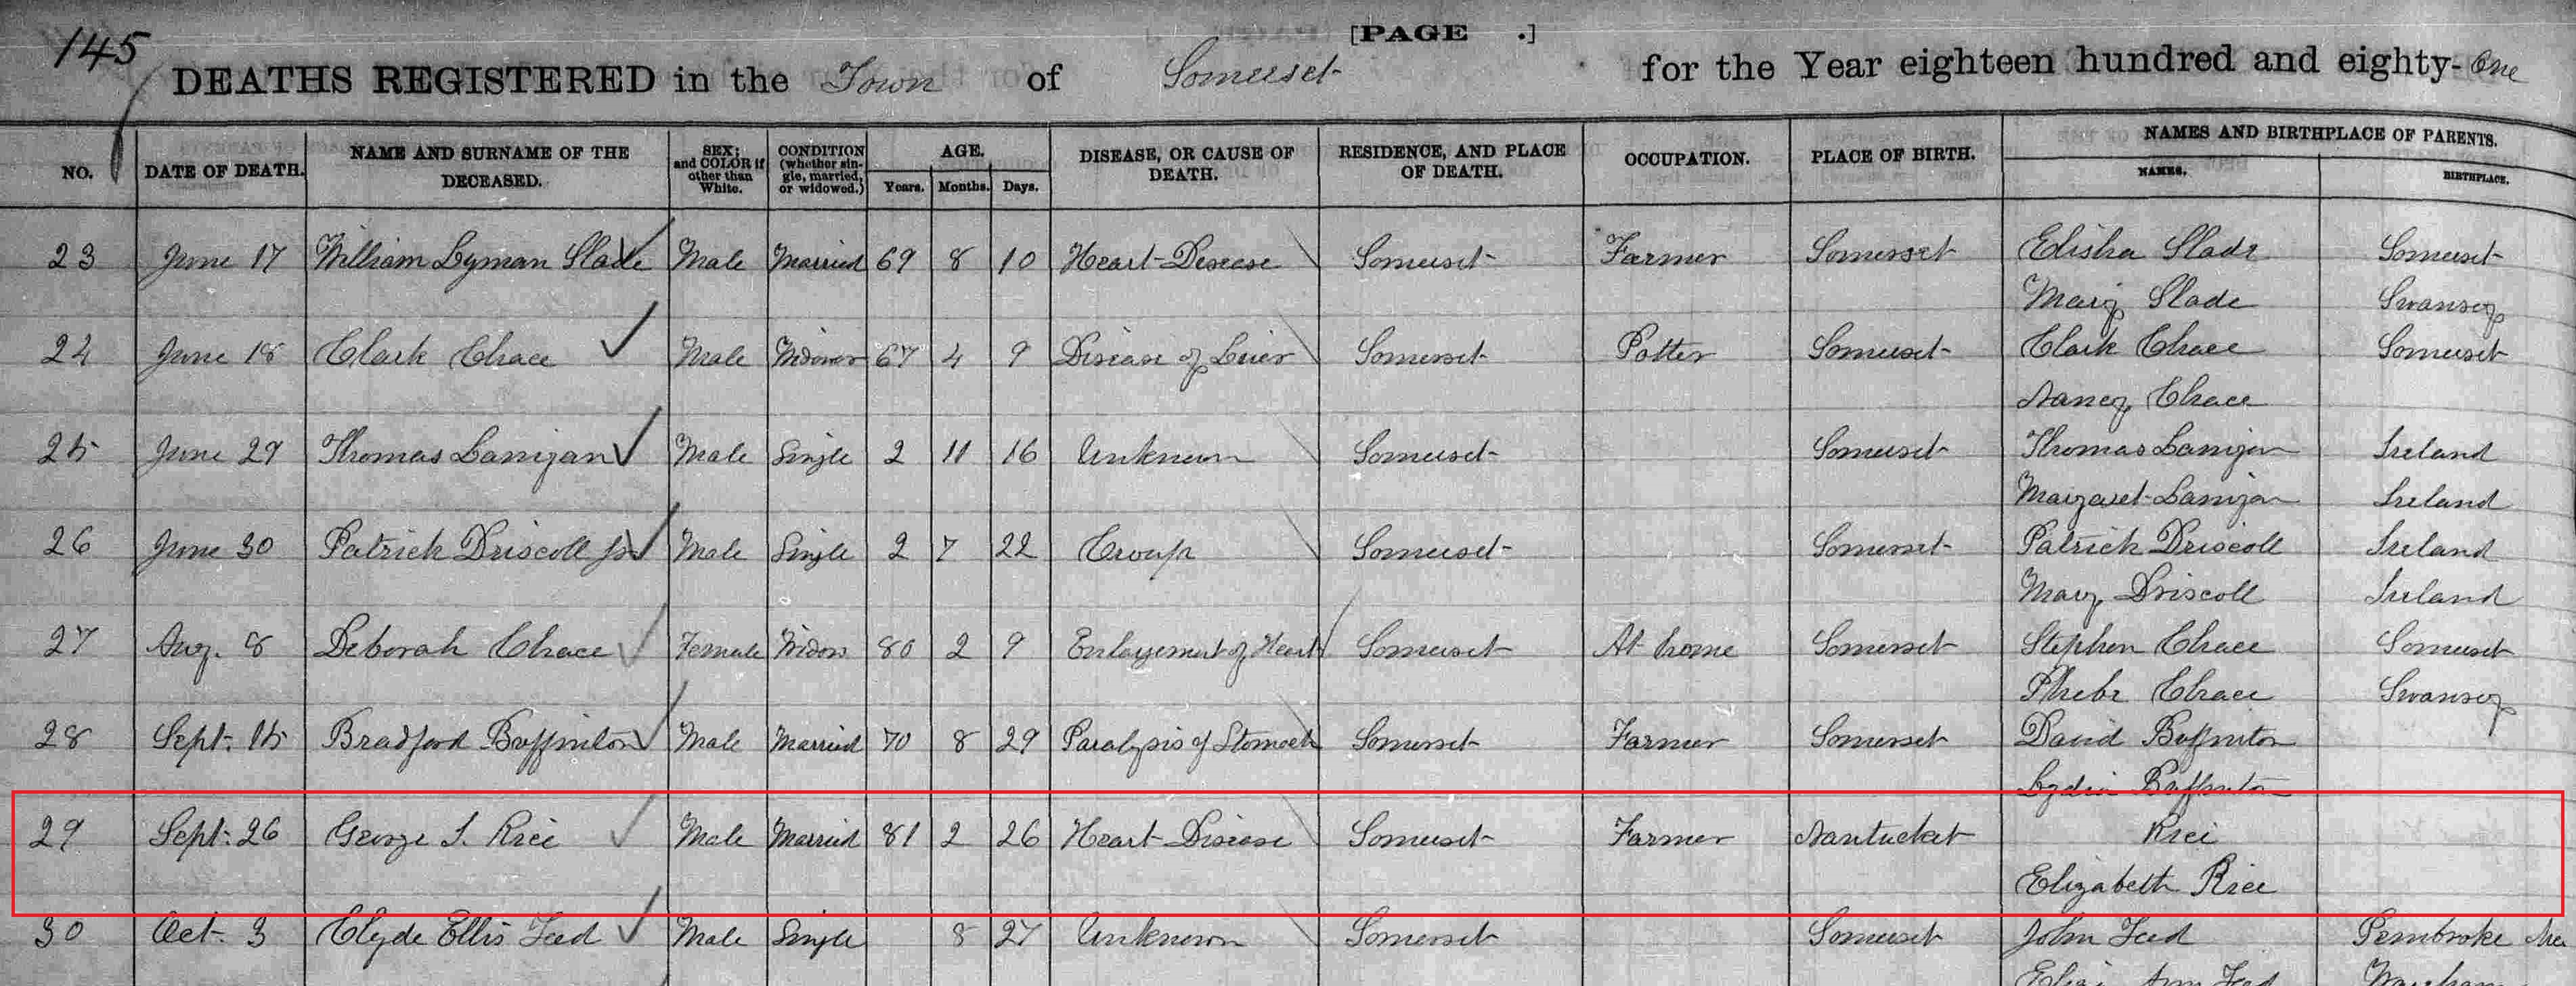 145
[PAGE .]
DEATHS REGISTERED in the Town of Somerset for the Year eighteen hundred and eighty-One
NO. DATE OF DEATH. NAME AND SURNAME OF THE DECEASED. SEX; and COLOR if other than White. CONDITION (whether single, married, or widowed.) AGE. Years. Months. Days. DISEASE, OR CAUSE OF DEATH. RESIDENCE, AND PLACE OF DEATH. OCCUPATION. PLACE OF BIRTH. NAMES AND BIRTHPLACE OF PARENTS. NAMES. BIRTHPLACE.
23 June 17 William Lyman Slade Male Married 69 8 10 Heart Disease Somerset Farmer Somerset Elisha Slade Somerset
Mary Slade Swansey
24 June 18 Clark Chace Male Widower 67 4 9 Disease of Liver Somerset Potter Somerset Clark Chace Somerset
Nancy Chace
25 June 29 Thomas Lanigan Male Single 2 11 16 Unknown Somerset Somerset Thomas Lanigan Ireland
Margaret Lanigan Ireland
26 June 30 Patrick Driscoll Jr Male Single 2 7 22 Croup Somerset Somerset Patrick Driscoll Ireland
Mary Driscoll Ireland
27 Aug. 8 Deborah Chace Female Widow 80 2 9 Enlargement of Heart Somerset At home Somerset Stephen Chace Somerset
Phebe Chace Swansey
28 Sept. 15 Bradford Buffinton Male Married 70 8 29 Paralysis of Stomach Somerset Farmer Somerset David Buffinton
Lydia Buffinton
29 Sept. 26 George S. Rice Male Married 81 2 26 Heart Disease Somerset Farmer Nantucket Rice
Elizabeth Rice
30 Oct. 3 Clyde Ellis Male Single 8 27 Unknown Somerset Somerset John Pembroke
Ann Wareham